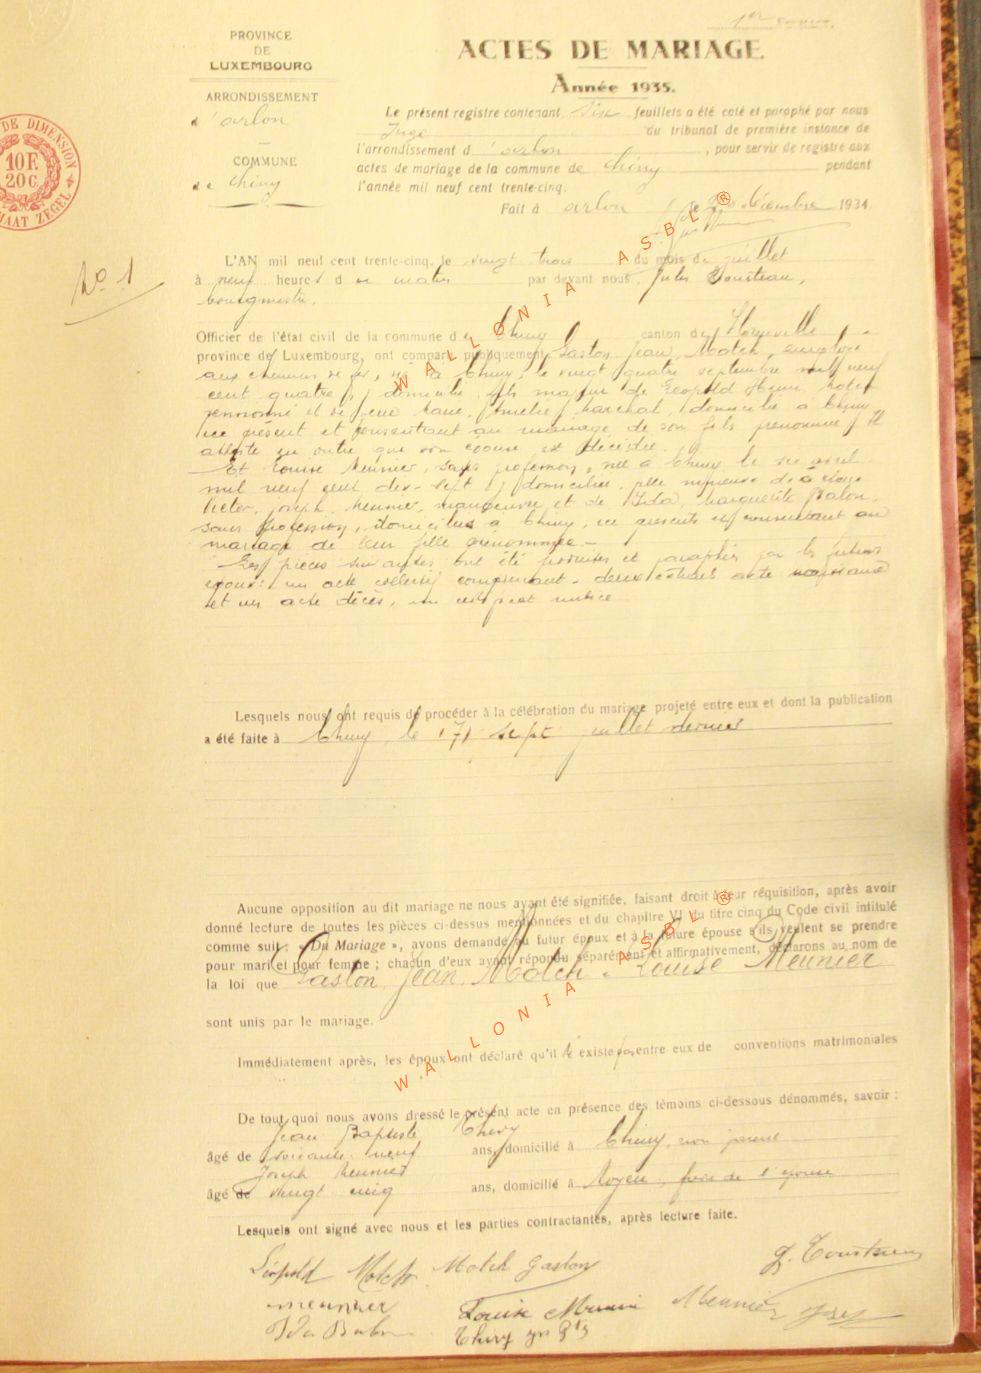 PROVINCE
DE
LUXEMBOURG
ARRONDISSEMENT
d'arlon
COMMUNE
de Chiny
DE DIMENSION
10 F.
20 C.
MAAT ZEGEL
ACTES DE MARIAGE
Année 1935.
Le présent registre contenant six feuillets a été coté et paraphé par nous
Juge du tribunal de première instance de
l'arrondissement d'arlon, pour servir de registre aux
actes de mariage de la commune de Chiny pendant
l'année mil neuf cent trente-cinq.
Fait à arlon le 20 décembre 1934.
No 1
L'AN mil neuf cent trente-cinq, le vingt trois du mois de juillet
à neuf heures du matin par devant nous, Jules
bourgmestre,
Officier de l'état civil de la commune de Chiny canton de
province de Luxembourg, ont comparu publiquement Gaston Jean Molch, employé
aux chemins de fer, né à Chiny, le vingt quatre septembre mil neuf
cent quatre, y domicilié, fils majeur de Léopold Henri Molch
prénommé et de feue Marie Amélie Marchal, domicilié à Chiny,
ici présent et consentant au mariage de son fils prénommé, Il
atteste en outre que son épouse est décédée.
Et Louise Meunier, sans profession, née à Chiny le six avril
mil neuf cent dix-sept, y domiciliée, fille mineure de
Victor, Joseph, Meunier, manoeuvre et de Ida, Marguerite
sans profession, domiciliés à Chiny, ici présents et consentant au
mariage de leur fille prénommée.
Les pièces suivantes ont été produites et paraphées par les futurs
époux: un acte collectif comprenant deux extraits acte naissance
et un acte décès, un certificat milice
Lesquels nous ont requis de procéder à la célébration du mariage projeté entre eux et dont la publication
a été faite à Chiny, le (7) sept juillet dernier
Aucune opposition au dit mariage ne nous ayant été signifiée, faisant droit à leur réquisition, après avoir
donné lecture de toutes les pièces ci-dessus mentionnées et du chapitre VI du titre cinq du Code civil intitulé
comme suit : « Du Mariage », avons demandé au futur époux et à la future épouse s'ils veulent se prendre
pour mari et pour femme ; chacun d'eux ayant répondu séparément et affirmativement, déclarons au nom de
la loi que Gaston, Jean, Molch - Louise Meunier
sont unis par le mariage.
Immédiatement après, les époux ont déclaré qu'il n'existe pas entre eux de conventions matrimoniales
De tout quoi nous avons dressé le présent acte en présence des témoins ci-dessous dénommés, savoir :
Jean Baptiste Thiry
âgé de soixante neuf ans, domicilié à Chiny, non parent
Joseph Meunier
âgé de vingt cinq ans, domicilié à Moyen, frère de l'épouse
Lesquels ont signé avec nous et les parties contractantes, après lecture faite.
Léopold Molch Molch Gaston
meunier Louise Meunier Meunier Jos
Ida Thiry
WALLONIA ASBL ®
WALLONIA ASBL ®